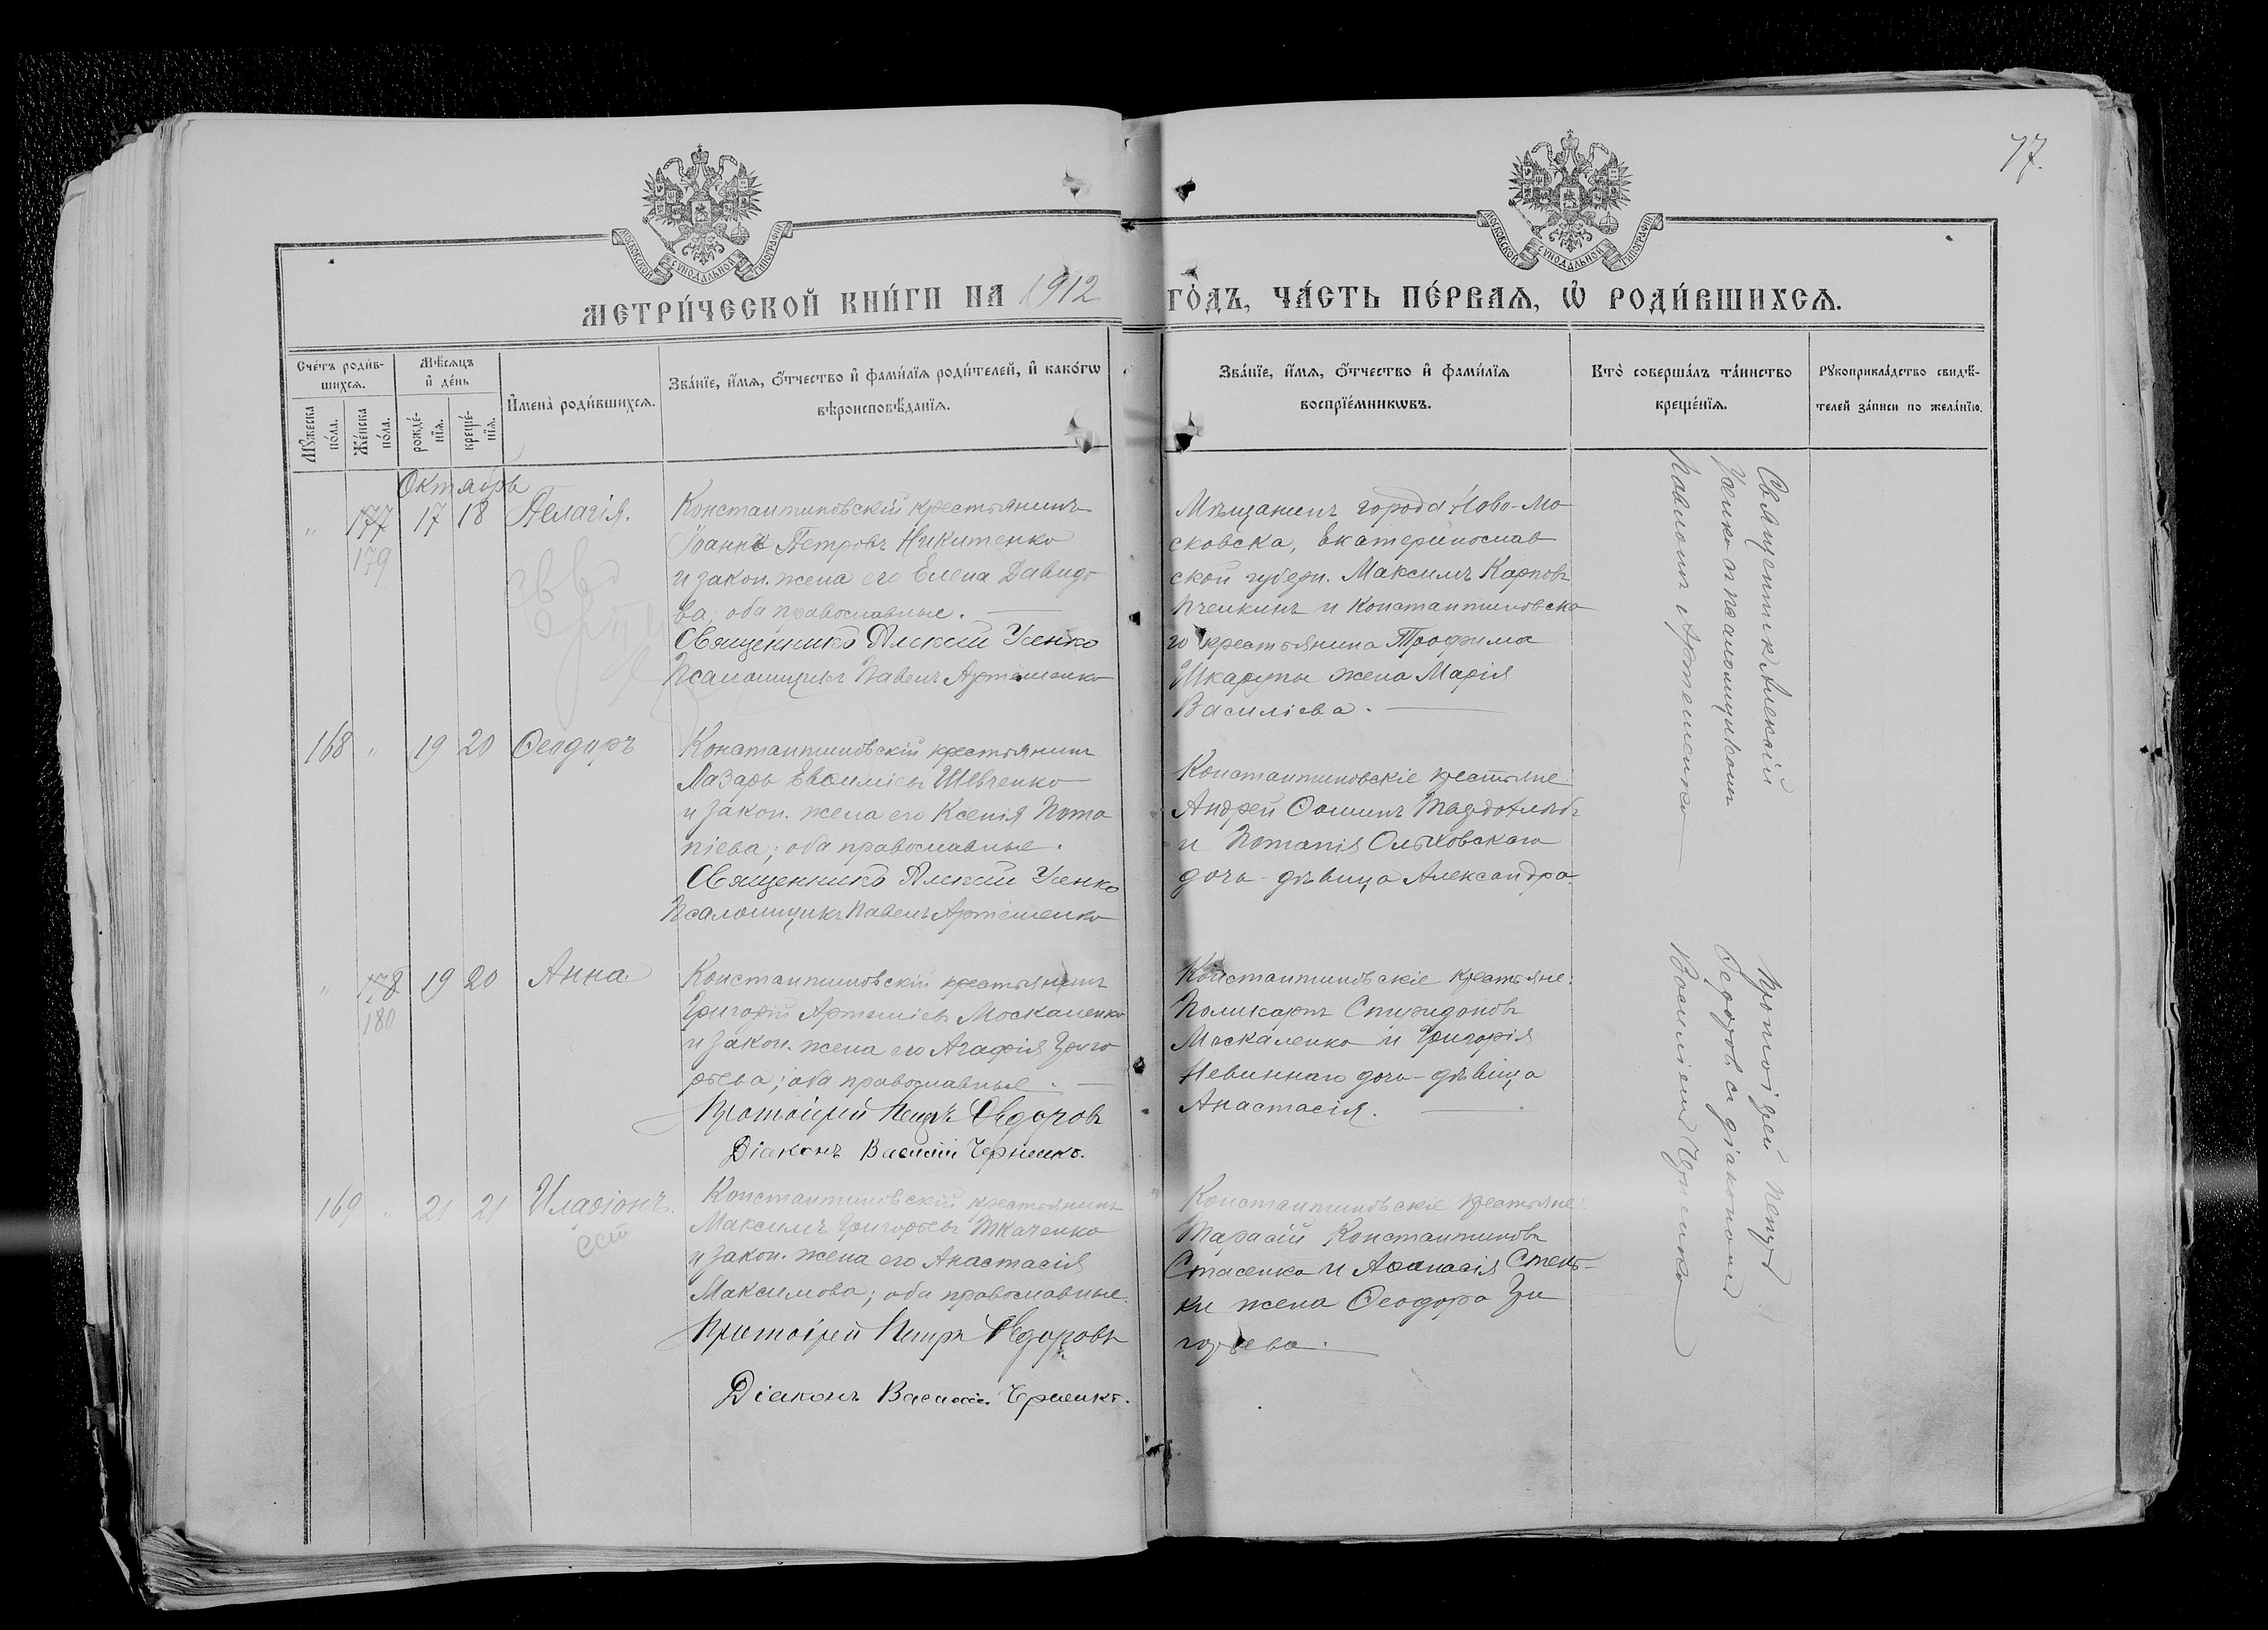 77.
МОСКОВСКОЙ СѴНОДАЛЬНОЙ ТИПОГРАФІИ
МОСКОВСКОЙ СѴНОДАЛЬНОЙ ТИПОГРАФІИ
МЕТРИ́ЧЕСКОЙ КНИ́ГИ НА 1912 ГО́ДЪ, ЧА́СТЬ ПЕ́РВАѦ, Ѽ РОДИ́ВШИХСѦ.
Сче́тъ роди́в-
шихсѧ.
Мꙋ́жеска по́ла.
Же́нска по́ла.
Мѣ́сѧцъ
и҆ де́нь
рожде́-
нїѧ.
креще́-
нїѧ.
И҆мена̀ роди́вшихсѧ.
Зва́нїе, и҆́мѧ, ѻ҆́тчество и҆ фами́лїѧ роди́телей, и҆ како́гѡ
вѣроисповѣ́данїѧ.
Зва́нїе, и҆́мѧ, ѻ҆́тчество и҆ фами́лїѧ
воспрїе́мникѡвъ.
Кто̀ соверша́лъ та́инство
креще́нїѧ.
Рꙋкоприкла́дство свидѣ́-
телей за́писи по жела́нїю.
Октябрь
" 177 17 18 Пелагія.
179
Константиновскій крестьянинъ
Іоаннъ Петровъ Никитенко
и закон. жена его Елена Давидо
ва, оба православные.
Священникъ Алексій Усенко
Псаломщикъ Павелъ Артеменко
Мѣщанинъ города Ново-Мо
сковска, Екатеринослав
ской губерн. Максимъ Карповъ
Пчелкинъ и Константиновска
го крестьянина Трофима
Шкарупы жена Марія
Василіева.
Священник Алексій
Усенко с псаломщикомъ
Павломъ Артеменко
168 " 19 20 Ѳеодоръ
Константиновскій крестьянинъ
Лазарь Евѳиміевъ Шевченко
и закон. жена его Ксенія Пота
піева; оба православные.
Священникъ Алексій Усенко
Псаломщикъ Павелъ Артеменко
Константиновскіе крестьяне:
Андрей Ѳоминъ
и Потапія Ольховскаго
дочь-дѣвица Александра.
" 178 19 20 Анна
180
Константиновскій крестьянинъ
Григорій Артеміевъ Москаленко
и закон. жена его Агафія Григо
рьева; оба православные.
Протоіерей Петръ Ѳедоровъ
Діаконъ Василій Черненко.
Константиновскіе крестьяне:
Поликарпъ Спиридоновъ
Москаленко и Григорія
Невиннаго дочь-дѣвица
Анастасія.
Протоіерей Петръ
Ѳедоровъ съ діакономъ
Василіемъ Черненко
169 " 21 21 Иларіонъ.
Константиновскій крестьянинъ
Максимъ Григорьевъ Ткаченко
и закон. жена его Анастасія
Максимова; оба православные.
Протоіерей Петръ Ѳедоровъ
Діаконъ Василій Черненко.
Константиновскіе крестьяне:
Тарасій Константиновъ
Стасенко и Аѳанасія Стень-
ки жена Ѳеодора Гри
горьева.